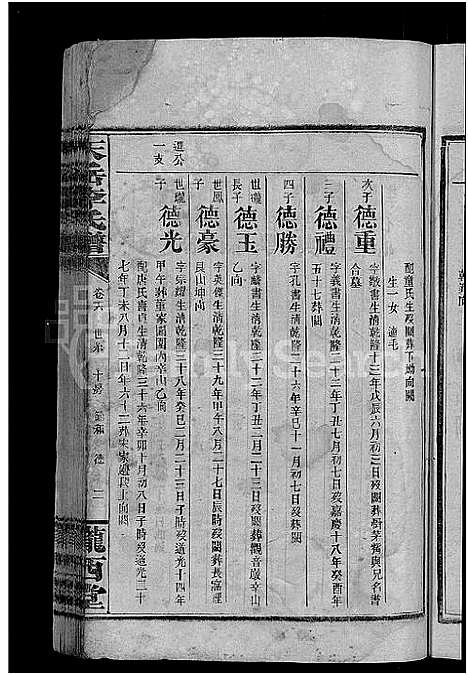 配童氏生歿闕葬下坳向闕
生一女 適毛
次子 德重 字敬書生清乾隆十三年戊辰六月初三日歿闕葬樹茅獨與兄名書
合墓
三子 德禮 字義書生清乾隆二十二年丁丑七月初七日歿嘉慶十八年癸酉年
五十七葬闕
四子 德勝 字孔書生清乾隆二十六年辛巳十一月初七歿葬闕
世 長子 德玉 書生清乾隆二十二年丁丑二月二十三日歿闕葬觀音巖辛山
乙向
世鳳子 德豪 字英 生清乾隆三十九年甲午八月二十七日辰時歿闕葬長嘉
艮山坤向
世 子 德光 字宗耀生清乾隆三十八年癸巳二月二十三日子時歿道光十四年
甲午葬董家園園內辛山乙向
配唐氏書貞生清乾隆三十六年辛卯十月初八日子時歿道光二十
七年丁未八月十二日年六十二葬宋家 向闕
道公
一支
李氏譜
卷六 世系
隴西堂